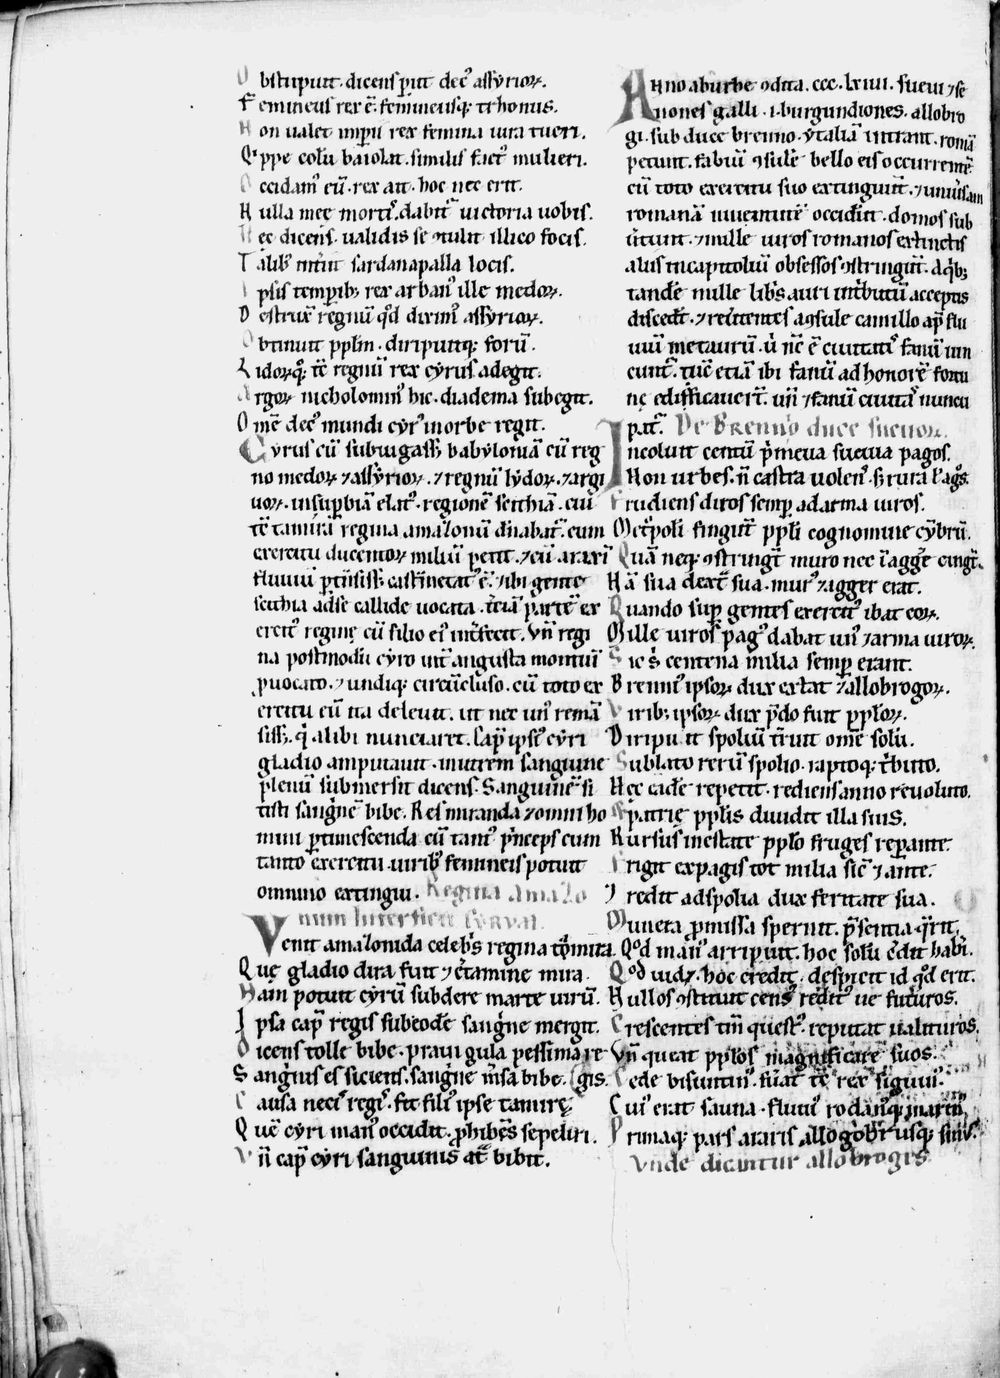 Obstupuit. dicens p̱iit dec᷒ assẏrioꝝ.
Femineus rex ē. femineusq; trhonus.
Non ualet imp̱ii rex femina iura tueri.
Qͥppe colū baiolat. similis fact᷒ mulieri.
Occidam᷒ eū. rex ait. hoc nec erit.
Nulla mee mortis dabit᷒ uictoria uobis.
Hec dicens. ualidis se ꝯtulit illico focis.
Talib᷒ sardanapalla locis.
Ipsis temp̱ib; rex arban᷒ ille medoꝝ.
Destrux̄ regnū qͦd dixim᷒ assẏrioꝝ.
Obtinuit pp̱lm. diripuitq; forū.
Lidoꝝq; tē regnū rex cẏrus adegit.
Argoꝝ nicholomin᷒ hic. diadema subegit.
Om̄e dec᷒ mundi cẏr᷒ in orbe regit.
Cẏrus cū subiugass; babẏloniā cū reg
no medoꝝ ⁊ assẏrioꝝ. ⁊ regnū lẏdoꝝ. ⁊ argi
uoꝝ. in sup̱biā elat᷒. regionē scithiā. cui
tē tamira regina amazonū dn̄abat᷒. cum
exercitu ducentoꝝ miliū petit. ⁊ cū araxī
fluuiū
scithia ad se callide uocata. t̄ciā partē ex
ercit᷒ reginę cū filio ei᷒ int̄fecit. Vn̄ regi
na postmodū cẏro int̄ angusta montiū
ꝓuocato. ⁊ undiq; circūcluso. cū toto ex
ercitu eū ita deleuit. ut nec un᷒ remā
siss;. qͥ alibi nunciaret. Cap̱ ipsi᷒ cẏri
gladio amputauit. in utrem sanguine
plenū submersit dicens. Sanguinē si
tisti sangͥnē bibe. Res miranda ⁊ omni ho
mini p̱timescenda cū tant᷒ pͥnceps cum
tanto exercitu. uirib᷒ femineis potuit
omnino extingui. Regina amazo
num interficit cyrum.
Venit amazonida celebͥs regina thͦmira.
Quę gladio dira fuit ⁊ c̄tamine mira.
Nam potuit cẏrū subdere marte uirū.
Ipsa cap̱ regis subeode sangͥne mergit.
Dicens tolle bibe. praui gula pessima re
Sangͥuis es siciens. sangͥne m̄sa bibe. (gis.
Causa neci᷒ regi᷒. fit fili᷒ ipse tamirę.
Quē cẏri man᷒ occidit. ꝓhibēs sepeliri.
Vn̄ cap̱ cẏri sanguinis at̄ bibit.
Anno ab urbe ꝯdita. ccc. lxiiii. sueui ⁊ se
nones galli. i. burgundiones. allobro
gi. sub duce brenno. ẏtaliā intrant. romā
petunt. fabiū ꝯsulē bello eis occurrentē
cū toto exercitu suo extinguūt. ⁊ uniūsam
romanā iuuentutē occidūt. domos sub
ūtunt. ⁊ mille uiros romanos extinctis
aliis in capitoliū obsessos ꝯstringūt. a qͥb;
tandē mille libͥs auri in tͥbutū acceptis
discedūt. ⁊ reūtentes a ꝯsule camillo ap̱ flu
uiū metaurū. ū nc̄ ē ciuitatͥ fanū uin
cunt᷒. tūc etiā ibi fanū ad honorē fortu
nę edifficauert̄. un̄ ⁊ fanū ciuitaͥ nuncu
pat᷒. De Brenno duce sueuoꝝ.
Incolūt centū pͥmeua sueuia pagos.
Non urbes. n̄ castra uolens. sꝫ rura ł agͦs.
Erudiens diros semp̱ ad arma uiros.
Met̄poli fingūt pp̱li cognomine cẏbrū.
Quā neq; ꝯstringit muro nec ī aggē cingͥt.
Nā sua dext̄ sua. mur᷒ ⁊ agger erat.
Quando sup̱ gentes exercit᷒ ibat eoꝝ.
Mille uiros pag᷒ dabat un᷒ ⁊ arma uiroꝝ.
Sic sͥ centena milia semp̱ erant.
Brenn᷒ ipsoꝝ dux extat ⁊ allobrogoꝝ.
Virib; ipsoꝝ dux pͥdo fuit pp̱loꝝ.
Diripuit spoliū t̄ruit om̄e solū.
Sublato rerū spolio. raptoq; tͥbuto.
Nec eadē repetit. rediens anno reuoluto.
patrię pp̱lis diuidit illa suis.
Rursus in estate pp̱lo fruges rep̱ante.
Erigit ex pagis tot milia sic᷒ ⁊ ante.
redit ad spolia dux feritate sua.
Munera ꝓmissa spernit. pͥsentia qͥrit.
Qͦd man᷒ arripuit. hoc solū c̄dit habͥi.
Qͦd uidꝫ hoc credit. despicit id qͦd erit.
Nullos ꝯstituit cens᷒ redit᷒ ue futūros.
Crescentes tm̄ quest᷒. reputat ualituros.
Vn̄ queat pp̱los magnificare suos.
Sede bisuntin᷒. fuāt tē rex siguui᷒.
Cui᷒ erat sauna. fluui᷒ rodan᷒q; marin᷒.
Primaq; pars araris allogobͥrusq; sin᷒.
Vnde dicuntur allobroges